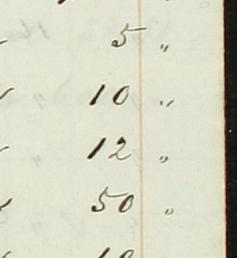 5 "
10 "
12 "
50 "
10